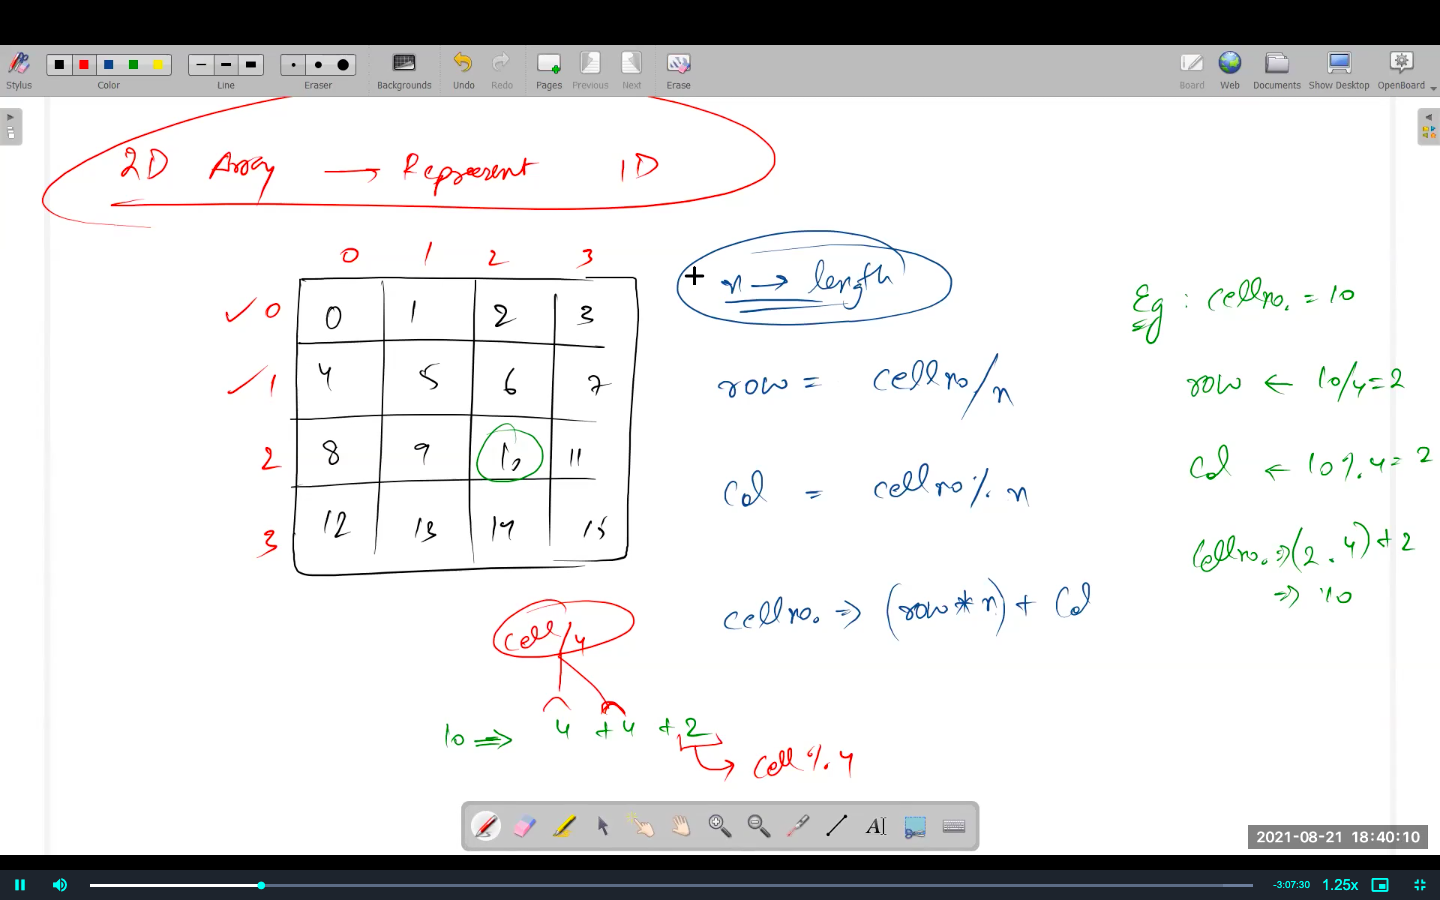 Stylus
Color
Line
Eraser
Backgrounds
Undo
Redo
Pages
Previous
Next
Erase
Board
Web
Documents
Show Desktop
OpenBoard
2D Array → Represent 1D
0 1 2 3
0 0 1 2 3
1 4 5 6 7
2 8 9 10 11
3 12 13 14 15
n → length
row = cell no/n
Col = cell no % n
cell no. ⇒ (row * n) + Col
Eg : cell no. = 10
row ← 10/4 = 2
Col ← 10 % 4 = 2
Cell no. ⇒ (2 . 4) + 2
⇒ 10
cell/4
10 ⇒ 4 + 4 + 2
cell % 4
2021-08-21 18:40:10
-3:07:30
1.25x